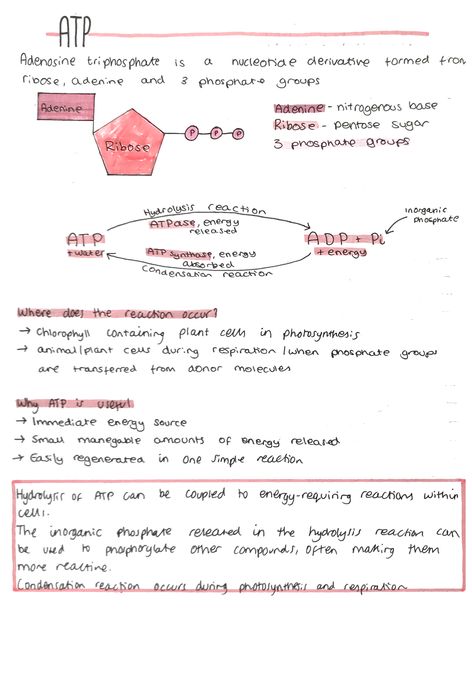 ATP
Adenosine triphosphate is a nucleotide derivative formed from
ribose, adenine and 3 phosphate groups
Adenine
Ribose
P P P
Adenine - nitrogenous base
Ribose - pentose sugar
3 phosphate groups
Hydrolysis reaction
ATPase, energy
released
inorganic
phosphate
ATP
+ water
ADP + Pi
+ energy
ATP synthase, energy
absorbed
Condensation reaction
Where does the reaction occur?
→ Chlorophyll containing plant cells in photosynthesis
→ animal/plant cells during respiration/when phosphate groups
are transferred from donor molecules
Why ATP is useful
→ Immediate energy source
→ Small manegable amounts of energy released
→ Easily regenerated in one simple reaction
Hydrolysis of ATP can be coupled to energy-requiring reactions within
cells.
The inorganic phosphate released in the hydrolysis reaction can
be used to phosphorylate other compounds, often making them
more reactive.
Condensation reaction occurs during photosynthesis and respiration